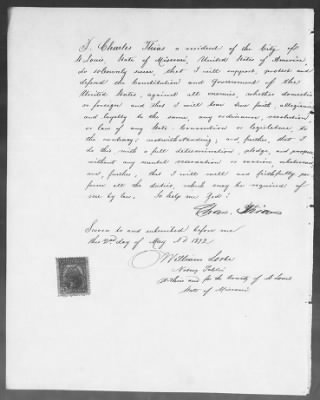 I. Charles Thias a resident of the City of
St Louis State of Missouri, United States of America,
do solemnly swear, that I will support, protect and
defend the Constitution and Government of the
United States, against all enemies, whether domestic
or foreign and that I will bear true faith, allegiance
and loyalty to the same, any ordinance, resolution
or law of any State Convention or legislature to
the contrary, notwithstanding; and further, that I
do this with a full determination, pledge, and purpose
without any mental reservation or evasion whatsoever
and, further, that I will well and faithfully per
form all the duties, which may be required of
me by law. So help me God!
Chas. Thias
Sworn to and subscribed before me
this day of May A.D 1872
William
Notary Public
Within and for the County of St Louis
State of Missouri